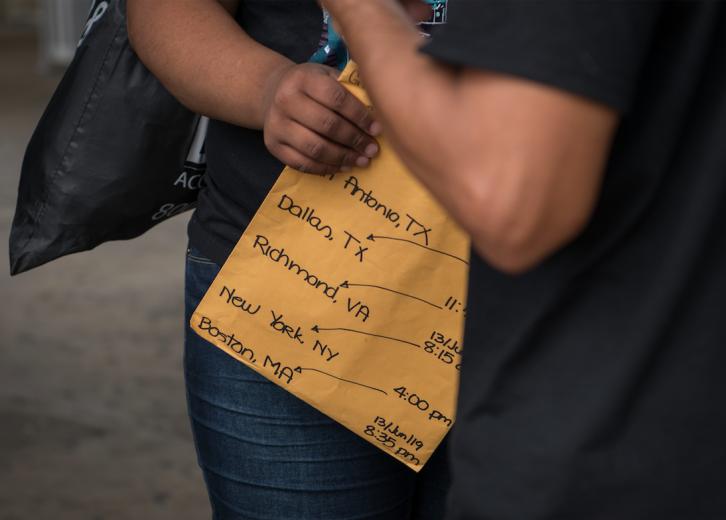 Antonio, TX
Dallas, TX
Richmond, VA
11:
New York, NY
13/Ju
8:15
Boston, MA
4:00 pm
13/Jun/19
8:35 pm